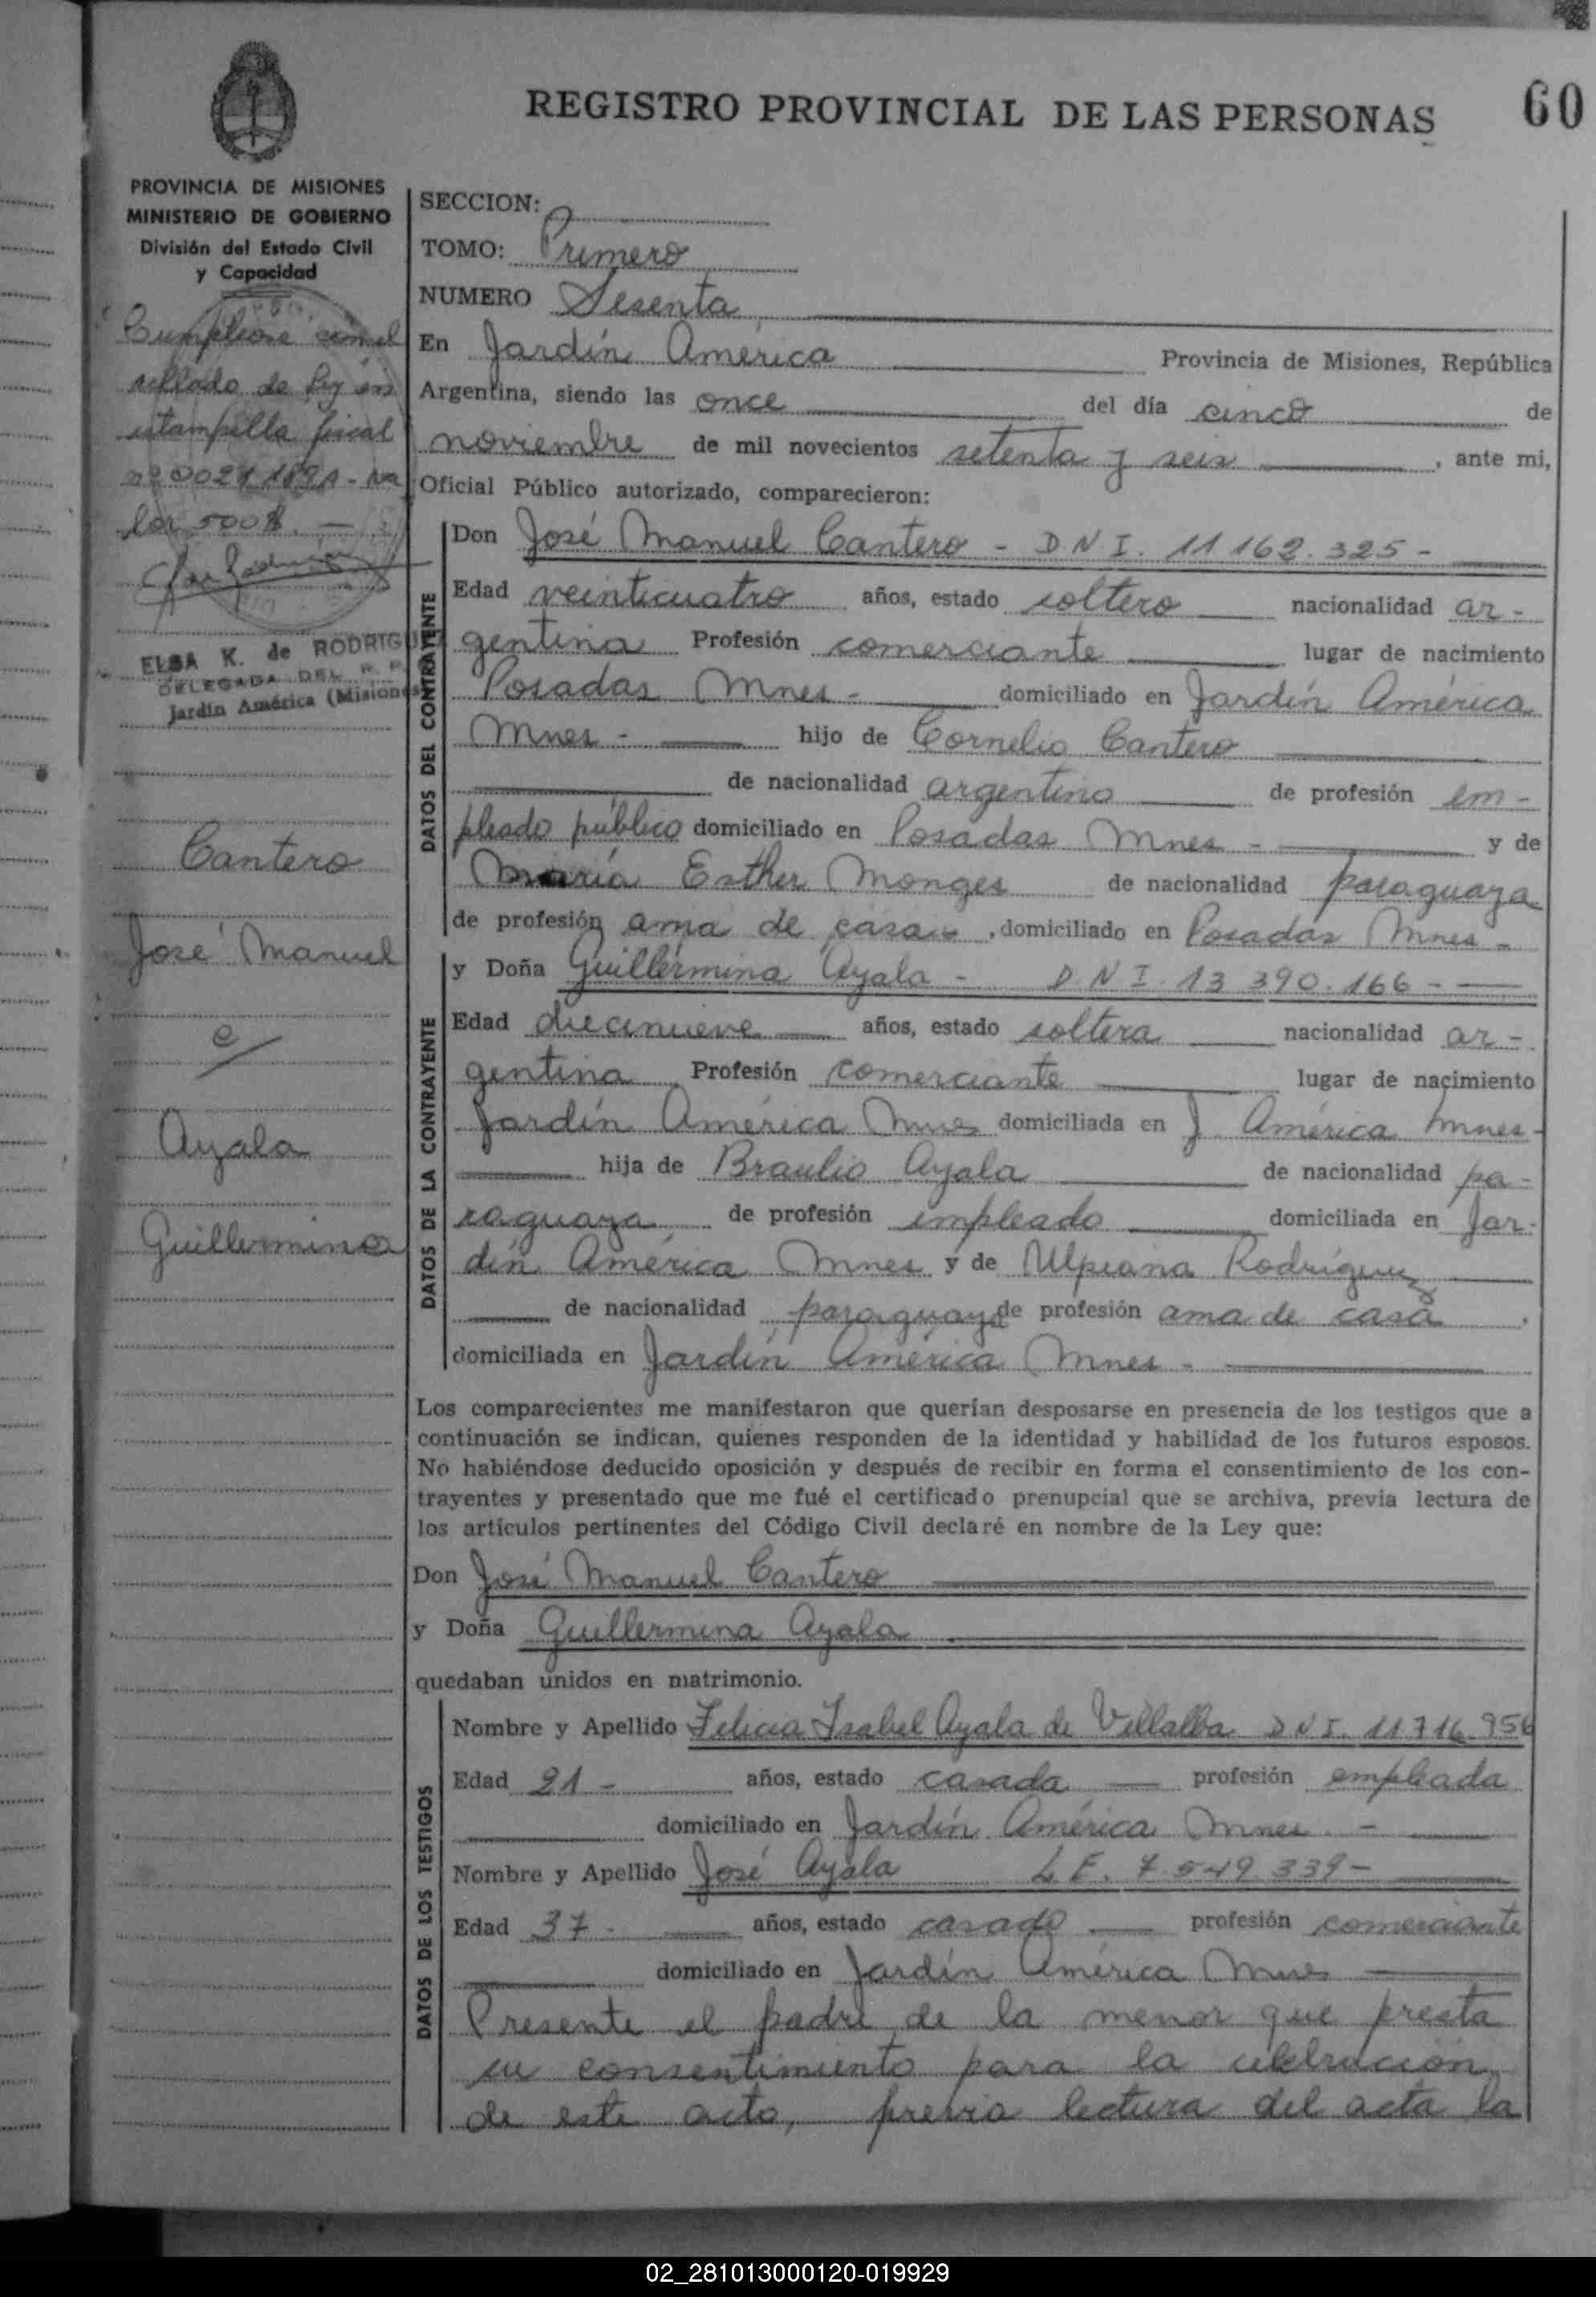 REGISTRO PROVINCIAL DE LAS PERSONAS
60
PROVINCIA DE MISIONES
MINISTERIO DE GOBIERNO
División del Estado Civil
y Capacidad
Cumplióse con el
sellado de ley en
estampilla fiscal
nº 0021189 - va
lor 500 $. —
ELSA K. de RODRIGUE
DELEGADA DEL R. P.
Jardín América (Misiones)
Cantero
José Manuel
c/
Ayala
Guillermina
SECCION:
TOMO: Primero
NUMERO Sesenta
En Jardín América Provincia de Misiones, República
Argentina, siendo las once del día cinco de
noviembre de mil novecientos setenta y seis, ante mi,
Oficial Público autorizado, comparecieron:
DATOS DEL CONTRAYENTE
Don José Manuel Cantero - D N I. 11 162. 325 -
Edad veinticuatro años, estado soltero nacionalidad ar -
gentina Profesión comerciante lugar de nacimiento
Posadas Mnes - domiciliado en Jardín América
Mnes - hijo de Cornelio Cantero
de nacionalidad argentino de profesión em -
pleado público domiciliado en Posadas Mnes - y de
María Esther Monges de nacionalidad paraguaya
de profesión ama de casa -, domiciliado en Posadas Mnes -
DATOS DE LA CONTRAYENTE
y Doña Guillermina Ayala - D. N I. 13 390. 166 -
Edad diecinueve años, estado soltera nacionalidad ar -
gentina Profesión comerciante lugar de nacimiento
Jardín América Mnes domiciliada en J. América Mnes -
hija de Braulio Ayala de nacionalidad pa -
raguaya de profesión empleado domiciliada en Jar -
dín América Mnes y de Ulpiana Rodríguez
de nacionalidad paraguaya de profesión ama de casa.
domiciliada en Jardín América Mnes -
Los comparecientes me manifestaron que querían desposarse en presencia de los testigos que a
continuación se indican, quienes responden de la identidad y habilidad de los futuros esposos.
No habiéndose deducido oposición y después de recibir en forma el consentimiento de los con-
trayentes y presentado que me fué el certificado prenupcial que se archiva, previa lectura de
los artículos pertinentes del Código Civil declaré en nombre de la Ley que:
Don José Manuel Cantero
y Doña Guillermina Ayala
quedaban unidos en matrimonio.
DATOS DE LOS TESTIGOS
Nombre y Apellido Felicia Isabel Ayala de Villalba D N I. 11.716.956
Edad 21 - años, estado casada profesión empleada
domiciliado en Jardín América Mnes -
Nombre y Apellido José Ayala L. E. 7 549 339 -
Edad 37 - años, estado casado profesión comerciante
domiciliado en Jardín América Mnes
Presente el padre de la menor que presta
su consentimiento para la celebración
de este acto, previa lectura del acta la
02_281013000120-019929